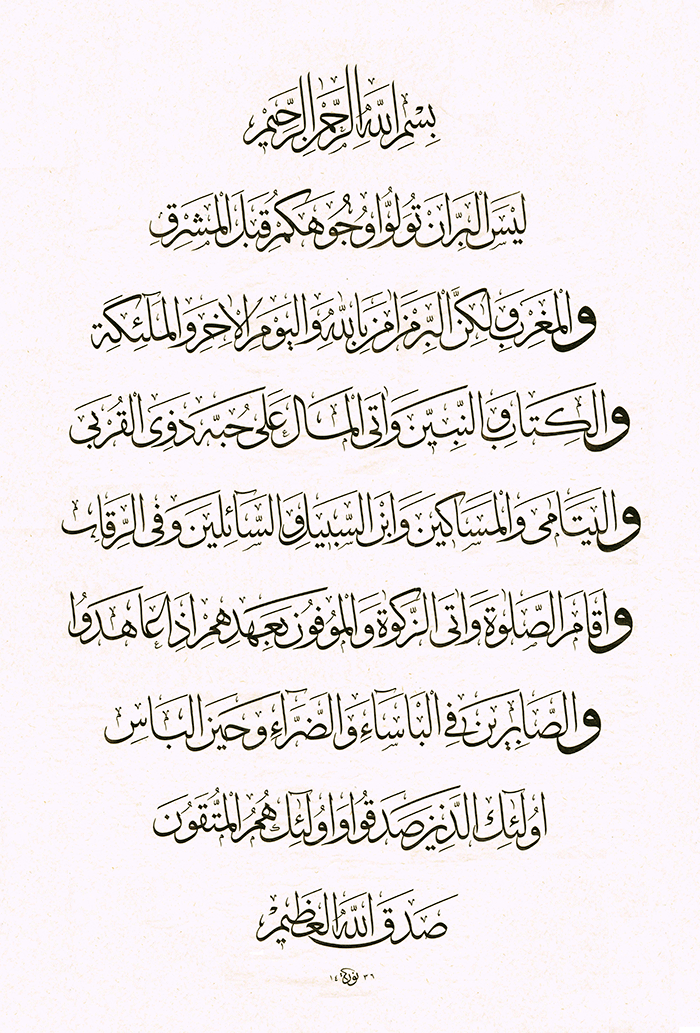 بِسْمِ اللّٰهِ الرَّحْمٰنِ الرَّحِيمِ
لَيْسَ الْبِرَّ اَنْ تُوَلُّوا وُجُوهَكُمْ قِبَلَ الْمَشْرِقِ
وَالْمَغْرِبِ وَلٰكِنَّ الْبِرَّ مَنْ اٰمَنَ بِاللّٰهِ وَالْيَوْمِ الْاٰخِرِ وَالْمَلٰٓئِكَةِ
وَالْكِتَابِ وَالنَّبِيّٖنَ وَاٰتَى الْمَالَ عَلٰى حُبِّهٖ ذَوِى الْقُرْبٰى
وَالْيَتَامٰى وَالْمَسَاكِينَ وَابْنَ السَّبِيلِ وَالسَّٓائِلِينَ وَفِى الرِّقَابِ
وَاَقَامَ الصَّلٰوةَ وَاٰتَى الزَّكٰوةَ وَالْمُوفُونَ بِعَهْدِهِمْ اِذَا عَاهَدُوا
وَالصَّابِرِينَ فِى الْبَاْسَٓاءِ وَالضَّرَّٓاءِ وَحِينَ الْبَاْسِ
اُولٰٓئِكَ الَّذِينَ صَدَقُوا وَاُولٰٓئِكَ هُمُ الْمُتَّقُونَ
صَدَقَ اللّٰهُ الْعَظِيمُ
١٤٣٦